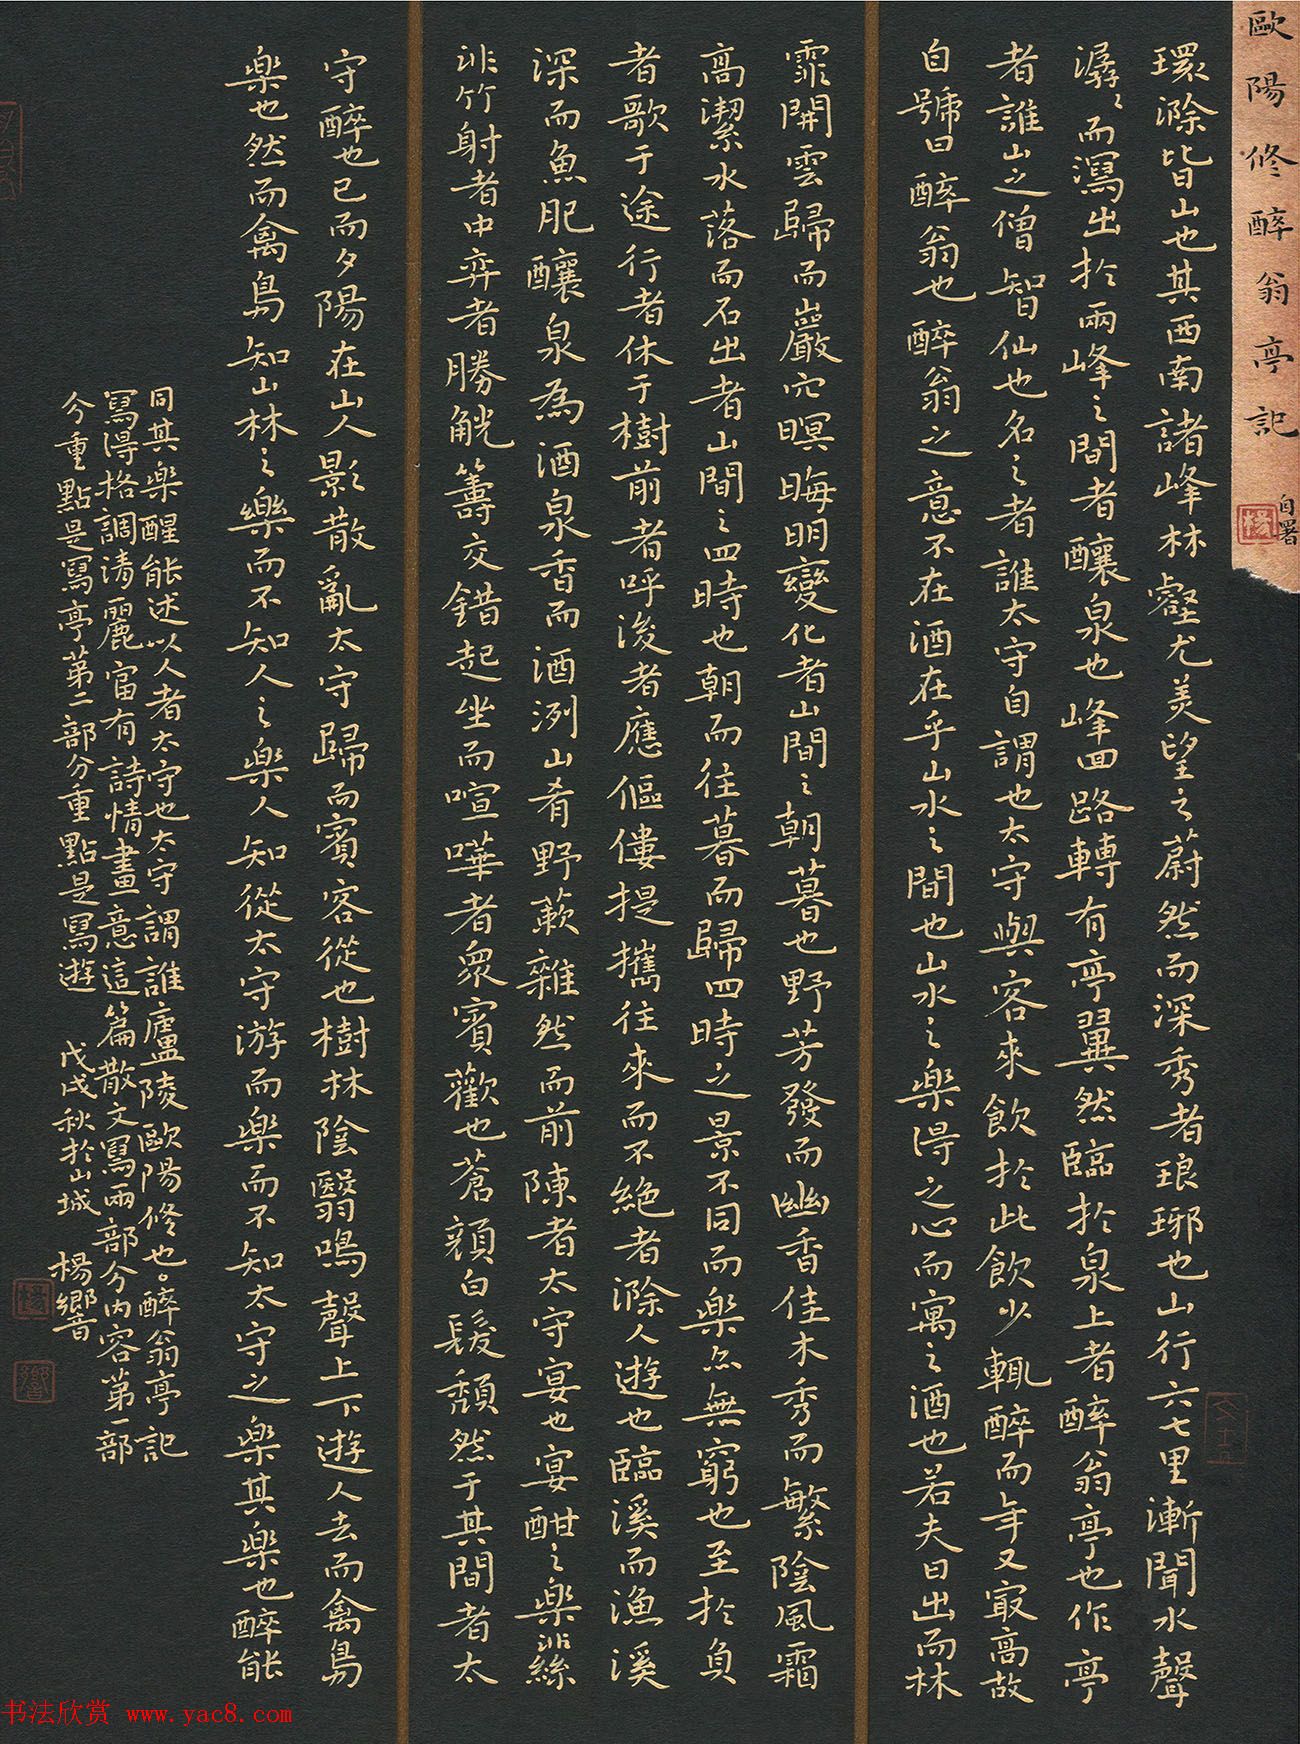 歐陽修醉翁亭記
自署
楊
環滁皆山也其西南諸峰林壑尤美望之蔚然而深秀者琅琊也山行六七里漸聞水聲
潺〻而瀉出於兩峰之間者釀泉也峰回路轉有亭翼然臨於泉上者醉翁亭也作亭
者誰山之僧智仙也名之者誰太守自謂也太守與客來飲於此飲少輒醉而年又最高故
自號曰醉翁也醉翁之意不在酒在乎山水之間也山水之樂得之心而寓之酒也若夫日出而林
霏開雲歸而巖穴暝晦明變化者山間之朝暮也野芳發而幽香佳木秀而繁陰風霜
高潔水落而石出者山間之四時也朝而往暮而歸四時之景不同而樂亦無窮也至於負
者歌于途行者休于樹前者呼後者應傴僂提攜往來而不絕者滁人遊也臨溪而漁溪
深而魚肥釀泉為酒泉香而酒洌山肴野蔌雜然而前陳者太守宴也宴酣之樂非絲
非竹射者中弈者勝觥籌交錯起坐而喧嘩者眾賓歡也蒼顏白髮頹然于其間者太
守醉也已而夕陽在山人影散亂太守歸而賓客從也樹林陰翳鳴聲上下遊人去而禽鳥
樂也然而禽鳥知山林之樂而不知人之樂人知從太守游而樂而不知太守之樂其樂也醉能
同其樂醒能述以人者太守也太守謂誰廬陵歐陽修也。醉翁亭記
寫得格調清麗富有詩情畫意這篇散文寫兩部分內容第一部
分重點是寫亭第二部分重點是寫遊 戊戌秋於山城 楊鄉音
书法欣赏 www.yac8.com